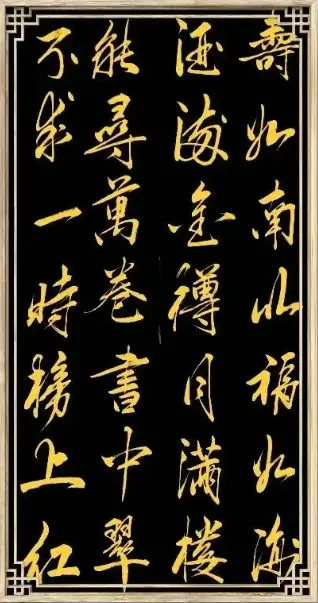 壽如南山福如海
酒滿金樽月滿樓
能尋萬卷書中翠
不求一時榜上紅